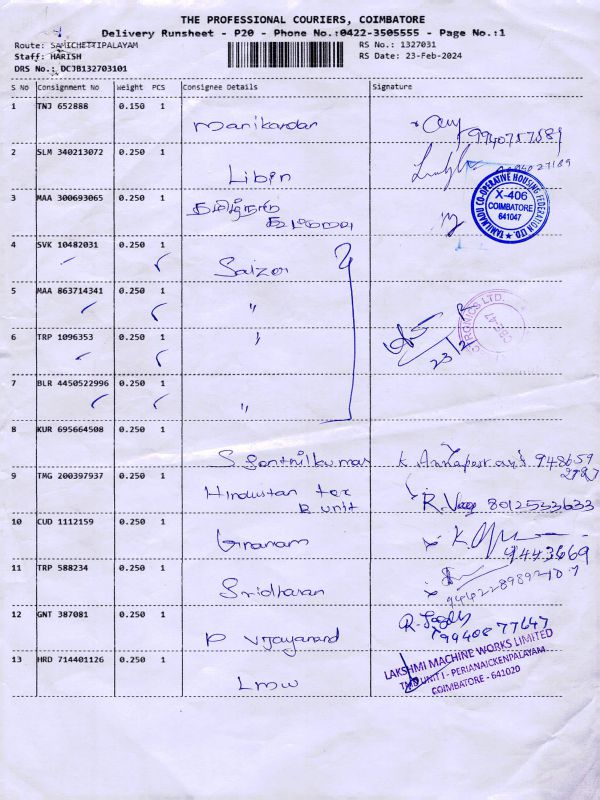 THE PROFESSIONAL COURIERS, COIMBATORE
Delivery Runsheet - P20 - Phone No.:0422-3505555 - Page No.:1
Route: SAMICHETTIPALAYAM
RS No.: 1327031
Staff: HARISH
RS Date: 23-Feb-2024
DRS No.: DCJB132703101
S No Consignment No Weight PCS Consignee Details Signature
1 TNJ 652888 0.150 1
Manikandan 9940757589
2 SLM 340213072 0.250 1
Libin
3 MAA 300693065 0.250 1
TAMILNADU CO-OPERATIVE HOUSING FEDERATION LTD.
X-406
COIMBATORE
641047
4 SVK 10482031 0.250 1
Saizer
5 MAA 863714341 0.250 1
"
6 TRP 1096353 0.250 1
23
7 BLR 4450522996 0.250 1
"
8 KUR 695664508 0.250 1
S. Senthilkumar
9 TMG 200397937 0.250 1
Hindustan tex
B unit
R. 8012533633
10 CUD 1112159 0.250 1
K.
11 TRP 588234 0.250 1
Sridharan
12 GNT 387081 0.250 1
P Vijayanand 9940877647
13 HRD 714401126 0.250 1
LMW
LAKSHMI MACHINE WORKS LIMITED
UNIT I - PERIANAICKENPALAYAM
COIMBATORE - 641020